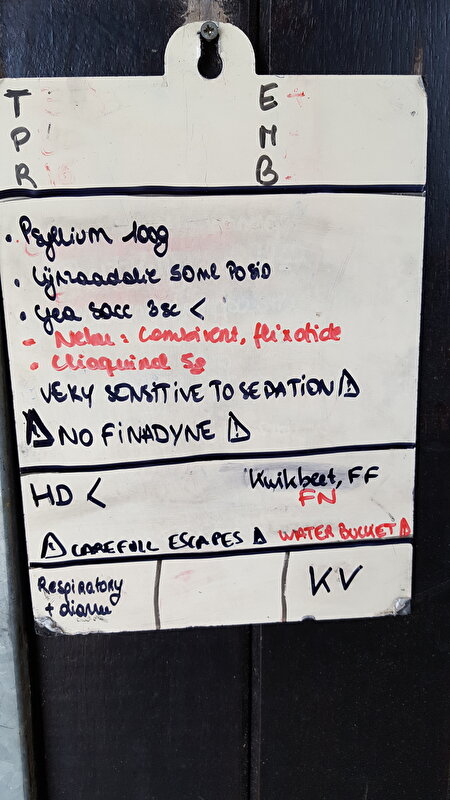 T E
P M
R B
• Psyllium 100g
• Lijnzaadolie 50ml POSID
• Yea sacc 3sc <
- Nebu: Combivent, flixotide
• Clioquinol 5g
VERY SENSITIVE TO SEDATION ⚠
⚠ NO FINADYNE ⚠
HD < Kwikbeet, FF
FN
⚠ CAREFULL ESCAPES ⚠ WATER BUCKET ⚠
Respiratory KV
+ diarru